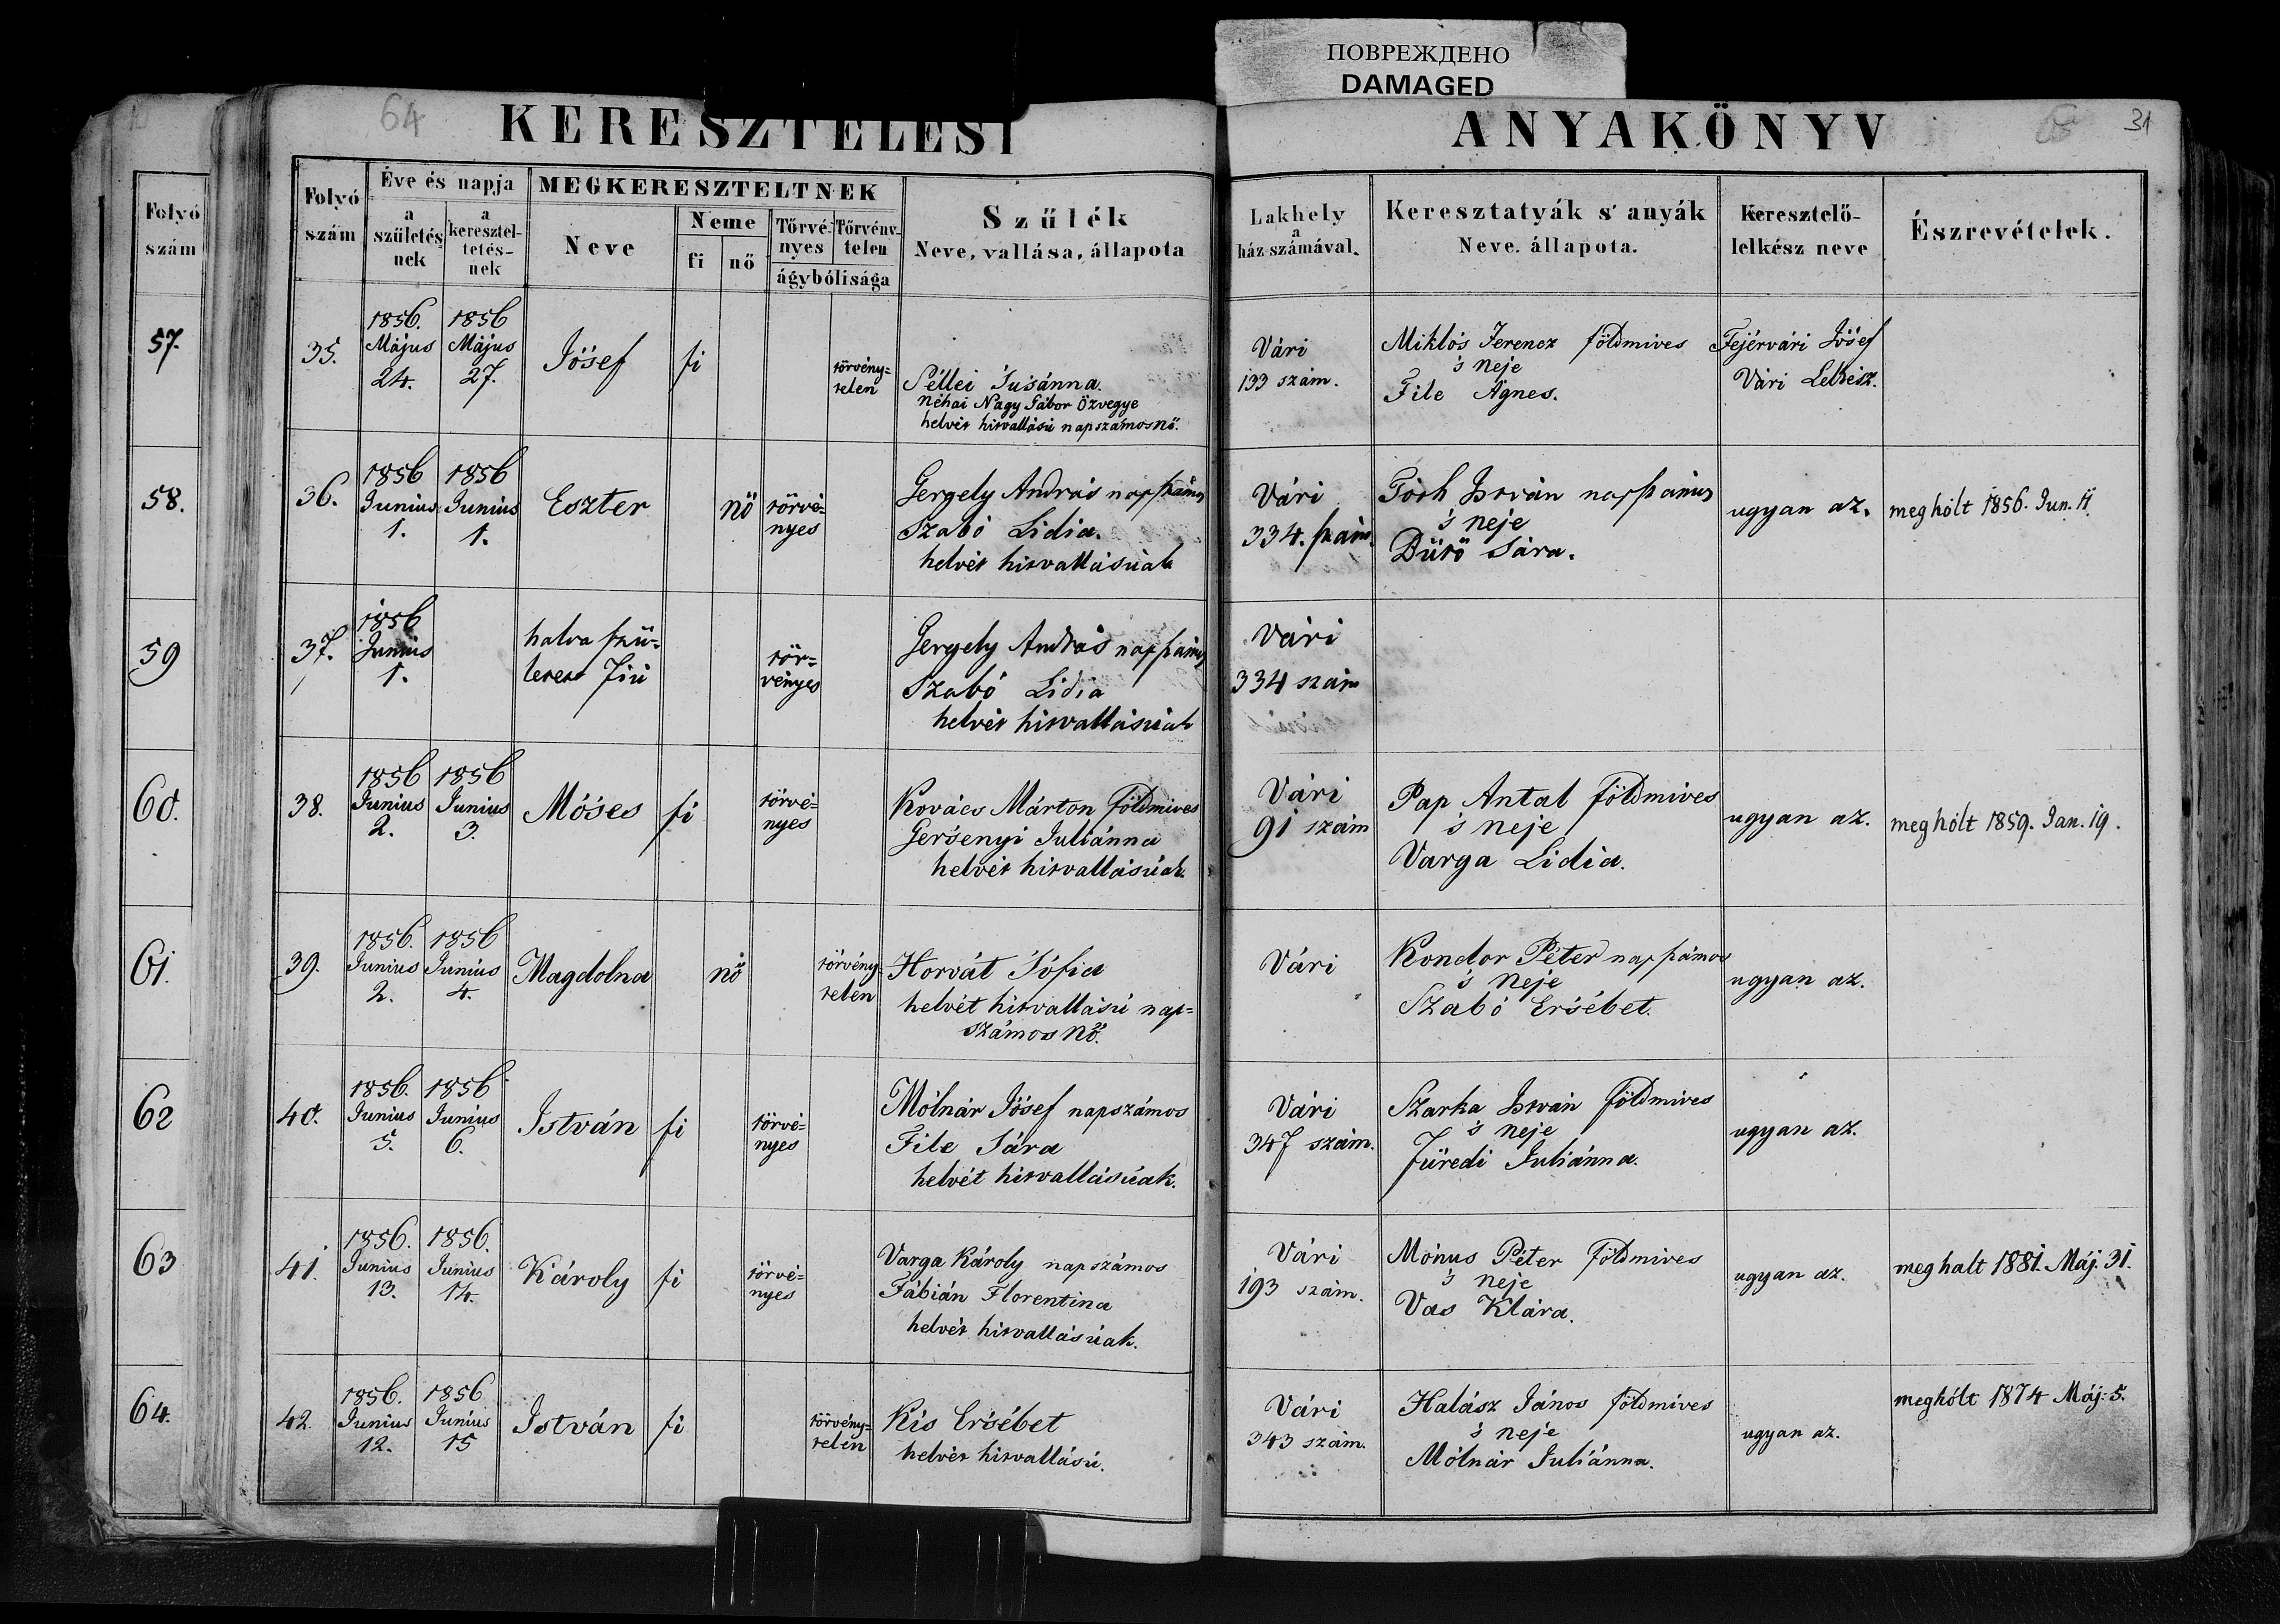 ПОВРЕЖДЕНО
DAMAGED
64
KERESZTELÉSI
ANYAKÖNYV
31
Folyó
szám
57.
58.
59
60.
61.
62
63
64.
Folyó
szám
Éve és napja
a
születés
nek
a
keresztel-
tetés-
nek
MEGKERESZTELTNEK
Neve
Neme
fi
nő
Törvé-
nyes
Törvény-
telen
ágybólisága
Szűlék
Neve, vallása, állapota
Lakhely
a
ház számával.
Keresztatyák s' anyák
Neve. állapota.
Keresztelő-
lelkész neve
Észrevételek.
35.
1856.
Május
24.
1856
Május
27.
Jósef
fi
törvény=
telen
Péllei Susánna.
néhai Nagy Gábor özvegye
helvét hitvallású napszámosnő.
Vári
133 szám.
Miklós Ferencz földmives
's neje
File Ágnes.
Fejérvári Jósef
Vári Lelkész.
36.
1856
Junius
1.
1856
Junius
1.
Eszter
nő
törvé=
nyes
Gergely András napszámos
Szabó Lidia.
helvét hitvallásúak
Vári
334. szám.
Tóth István napszámos
's neje
Dürő Sára.
ugyan az.
meghólt 1856. Jun. 11
37.
1856
Junius
1.
halva szü-
letett Fiú
tör=
vényes
Gergely András napszámos
Szabó Lidia
helvét hitvallásúak
Vári
334 szám
38.
1856
Junius
2.
1856
Junius
3.
Móses
fi
törvé=
nyes
Kovács Márton földmives
Gersenyi Juliánna
helvét hitvallásúak.
Vári
91 szám
Pap Antal földmives
's neje
Varga Lidia.
ugyan az.
meghólt 1859. Jan. 19.
39.
1856.
Junius
2.
1856
Junius
4.
Magdolna
nő
törvény-
telen
Horvát Sófia
helvét hitvallású nap=
számos nő.
Vári
Kondor Péter napszámos
's neje
Szabó Ersébet.
ugyan az.
40.
1856.
Junius
5.
1856
Junius
6.
István
fi
törvé=
nyes
Mólnár Jósef napszámos
File Sára
helvét hitvallásúak.
Vári
347 szám.
Szarka István földmives
's neje
Füredi Juliánna.
ugyan az.
41.
1856.
Junius
13.
1856.
Junius
14.
Károly
fi
törvé=
nyes
Varga Károly napszámos
Fábián Florentina
helvét hitvallásúak.
Vári
193 szám.
Mónus Péter földmives
's neje
Vas Klára.
ugyan az.
meghalt 1881. Máj. 31.
42.
1856.
Junius
12.
1856.
Junius
15
István
fi
törvény=
telen
Kis Ersébet
helvét hitvallású.
Vári
343 szám.
Halász János földmives
's neje
Mólnár Juliánna.
ugyan az.
meghólt 1874 Máj. 5.